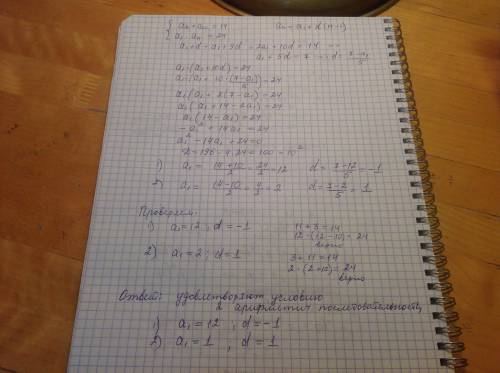 { a₂ + a₁₀ = 14    aₙ = a₁ + d(n-1)
a₁ · a₁₁ = 24
a₁ + d + a₁ + 9d = 2a₁ + 10d = 14
a₁ + 5d = 7    d = (7-a₁)/5
a₁ · (a₁ + 10d) = 24
a₁ · (a₁ + 10 · (7-a₁)/5) = 24
a₁ (a₁ + 2(7-a₁)) = 24
a₁ (a₁ + 14 - 2a₁) = 24
a₁ (14 - a₁) = 24
-a₁² + 14a₁ = 24
a₁² - 14a₁ + 24 = 0
= 196 - 4·24 = 100 = 10²
1) a₁ = (14+10)/2 = 24/2 = 12    d = (7-12)/5 = -1
2) a₁ = (14-10)/2 = 4/2 = 2    d = (7-2)/5 = 1
Проверяем:
1) a₁ = 12; d = -1    11 + 3 = 14
12 · (12-10) = 24
верно
2) a₁ = 2; d = 1    3 + 11 = 14
2 · (2+10) = 24
верно
Ответ: удовлетворяют условию
2 арифметич последовательности,
1) a₁ = 12; d = -1
2) a₁ = 1, d = 1